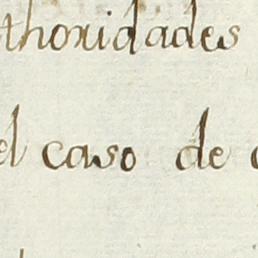 thoridades
el caso de